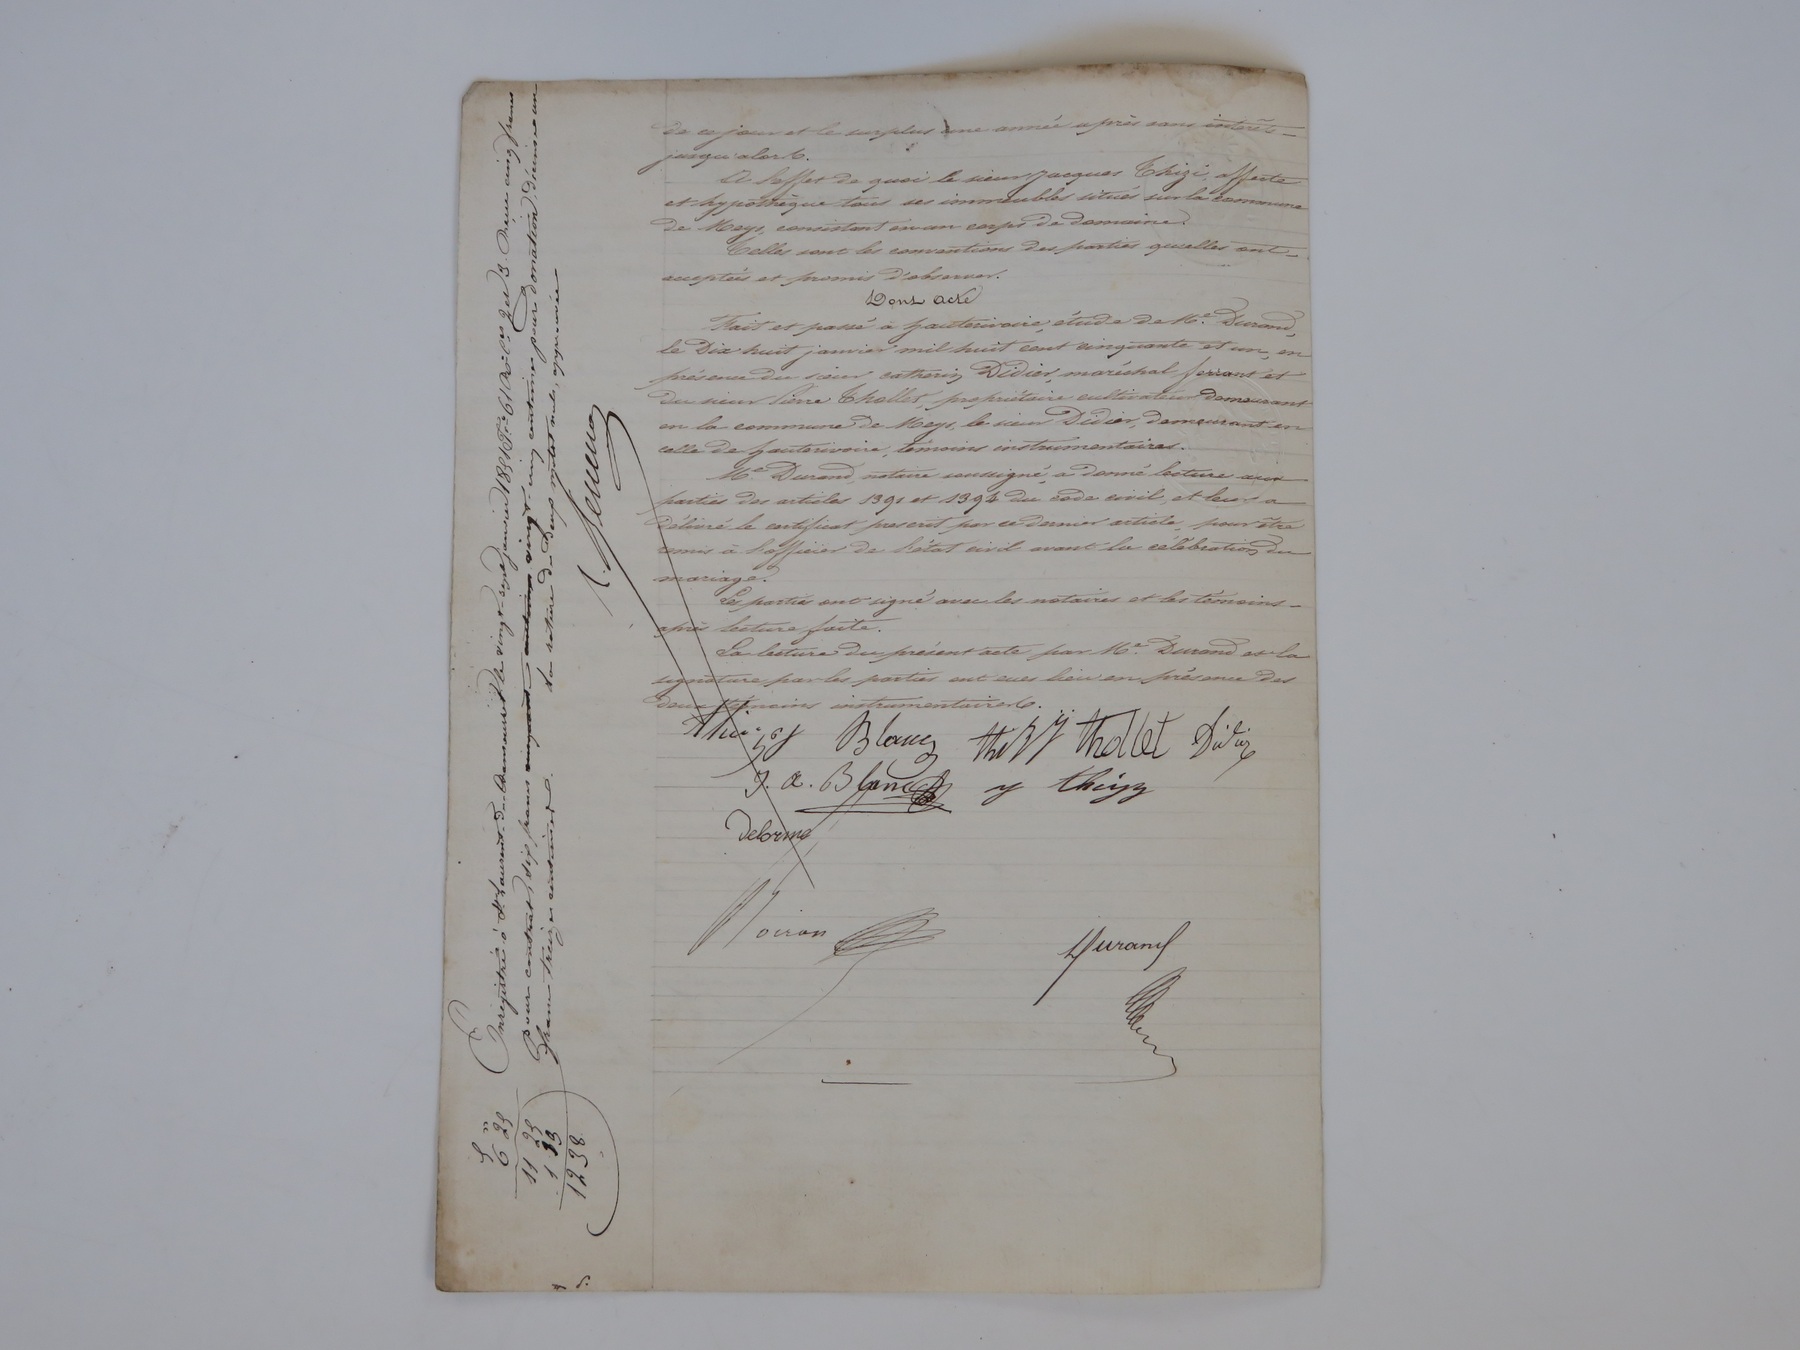 de ce jour et le surplus une année après sans intérêts
jusqu'alors.
A l'effet de quoi le sieur Jacques Thizi, affecte
et hypothèque tous ses immeubles situés sur la commune
de Meys, consistant en un corps de domaine.
Telles sont les conventions des parties qu'elles ont
acceptées et promis d'observer.
Dont acte
Fait et passé à hauterivoire, étude de Me. Durand,
le Dix huit janvier mil huit cent cinquante et un, en
présence du sieur catherin Didier, maréchal ferrant et
du sieur Pierre Thollet, propriétaire cultivateur demeurant
en la commune de Meys, le sieur Didier, demeurant en
celle de hauterivoire, témoins instrumentaires.
Me Durand, notaire soussigné, a donné lecture aux
parties des articles 1391 et 1394 du code civil, et leur a
délivré le certificat prescrit par ce dernier article, pour être
remis à l'officier de l'état civil avant la célébration du
mariage.
Les parties ont signé avec les notaires et les témoins
après lecture faite.
La lecture du présent acte par Me. Durand et la
signature par les parties ont eues lieu en présence des
deux témoins instrumentaires.
Blanc thizy thollet Didier
J. a. Blanc y thizy
delorme
Noiron
Durand
Enregistré à St. Laurent-de-Chamousset le vingt-sept janvier 1851 Fo. 61 Reçu cinq francs
Pour contrat, six francs vingt-cinq centimes pour donation, décime un
franc treize centimes. La rature de deux mots nuls, approuvée
5 "
6 25
11 25
1 13
12 38